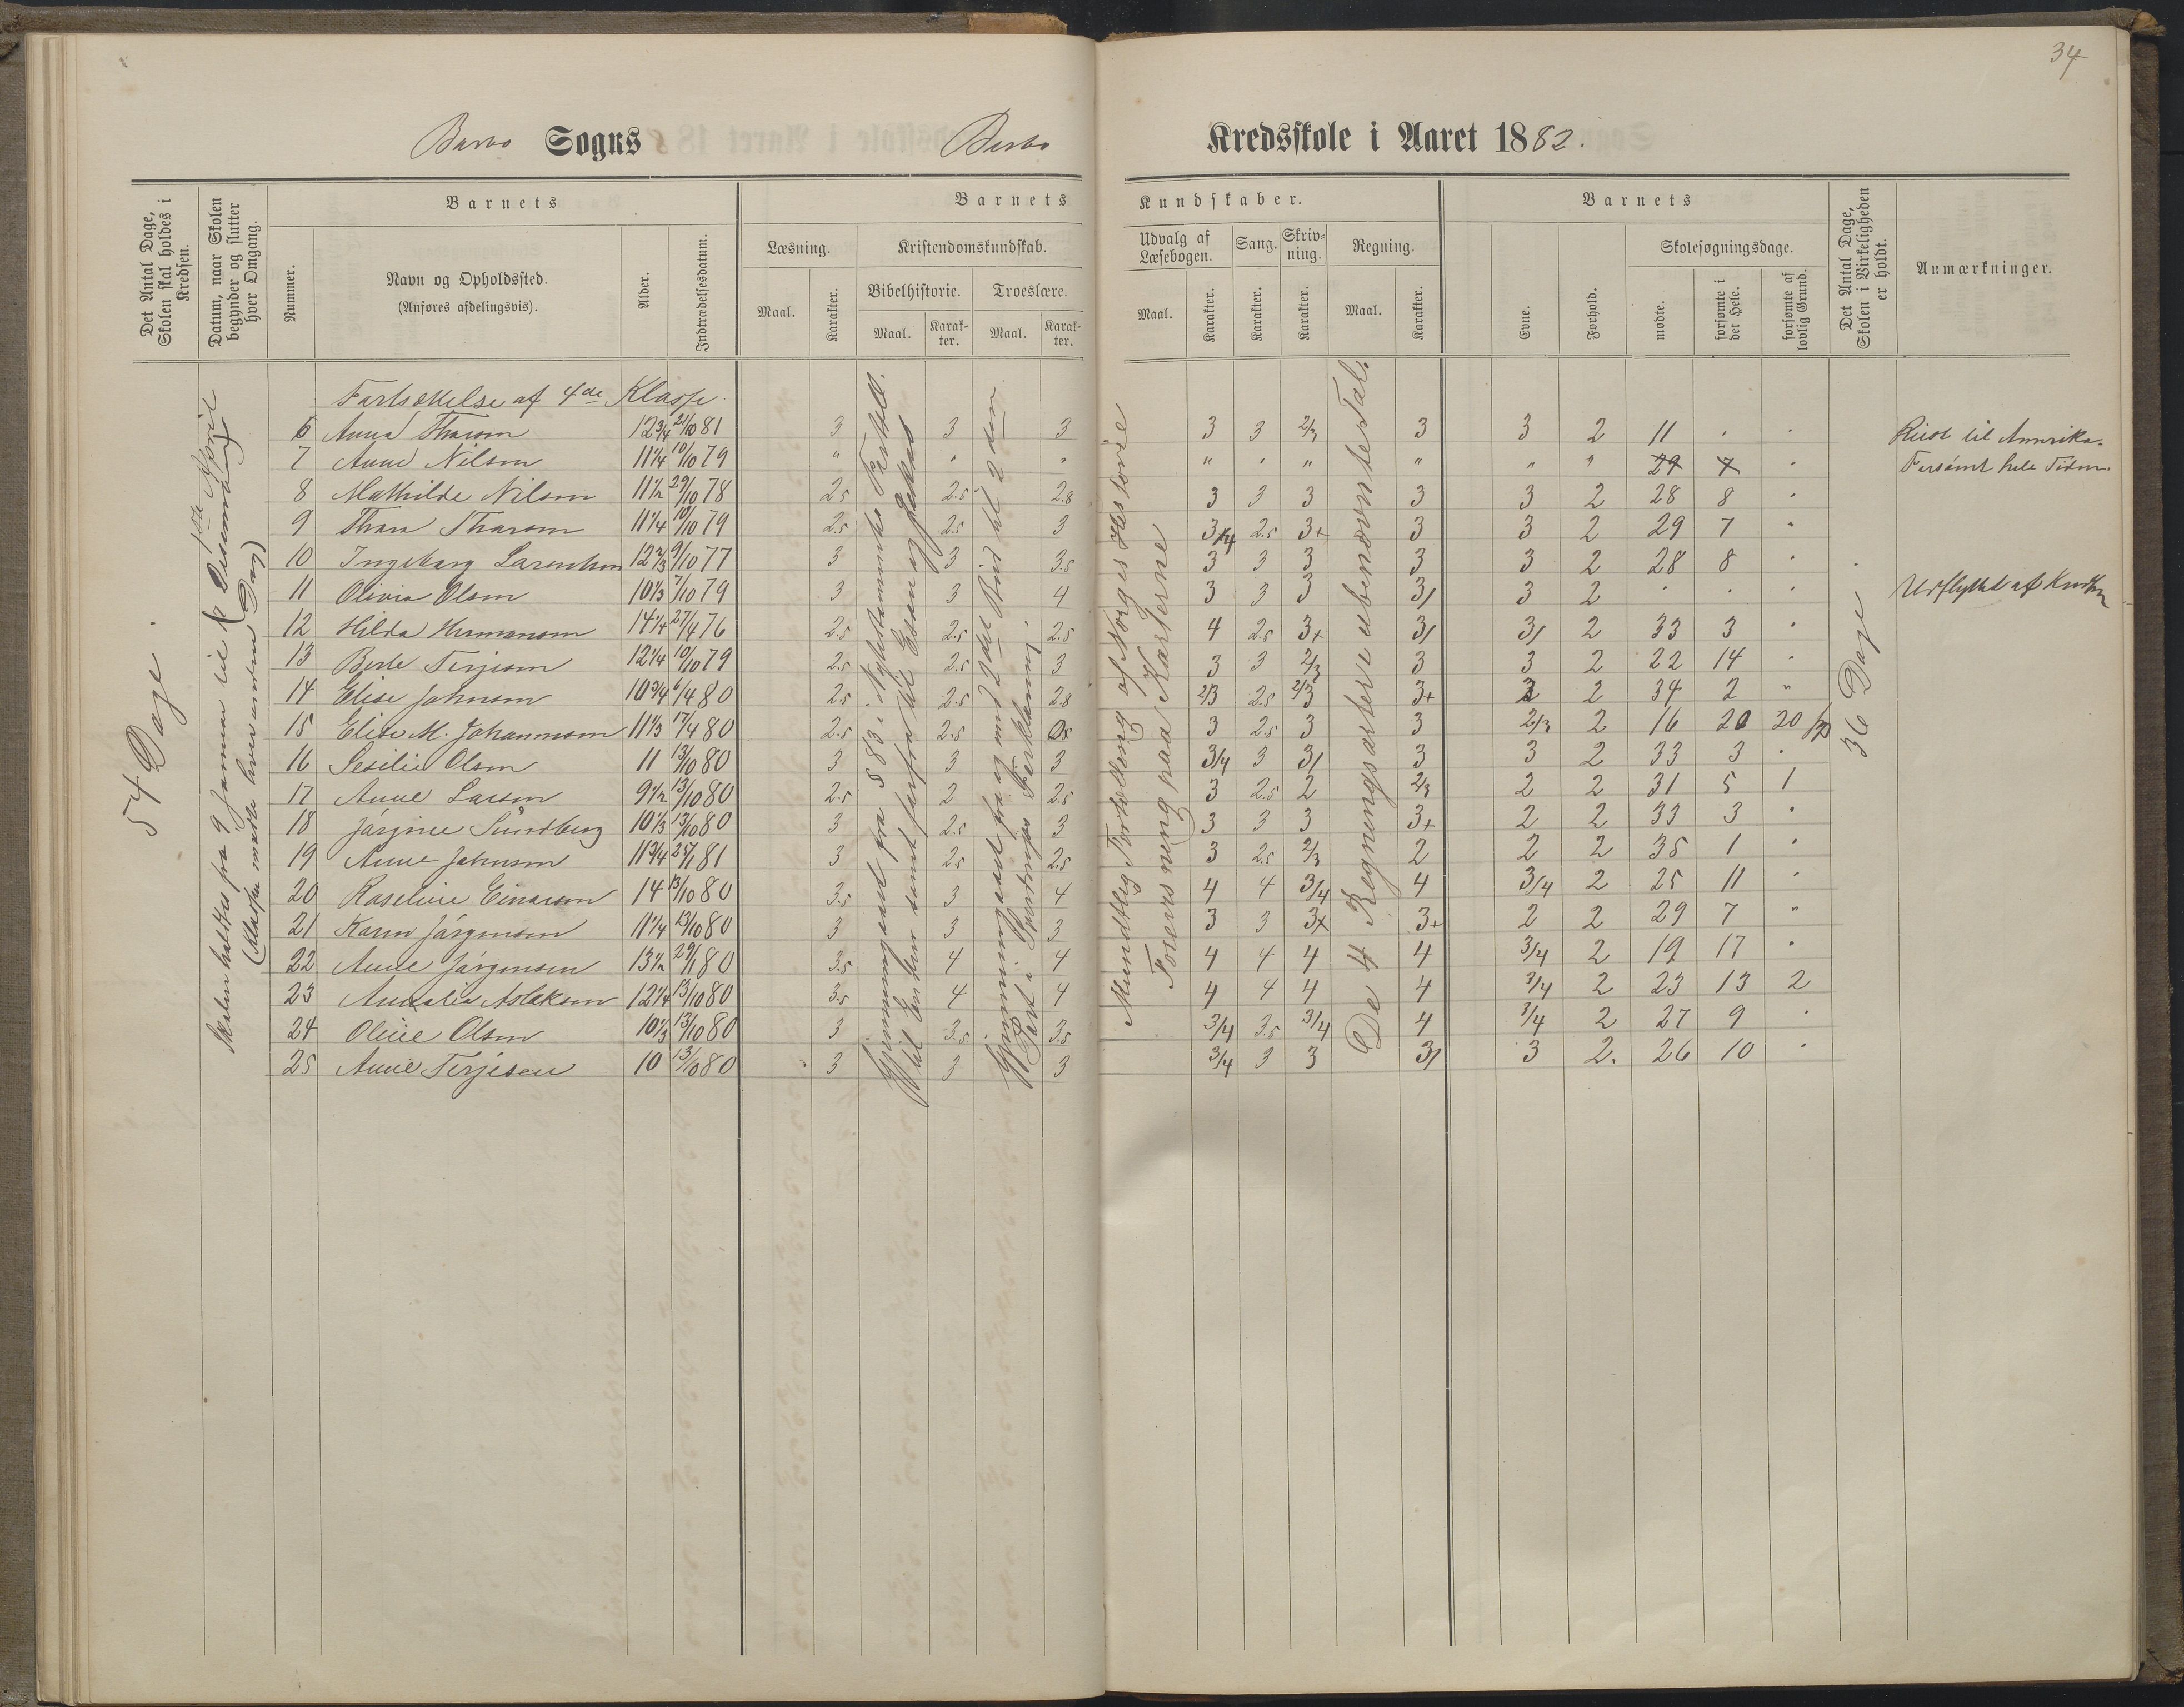 34
Barbo Sogns Barbo Kredsskole i Aaret 1882.
Det Antal Dage, Skolen skal holdes i Kredsen.
Datum, naar Skolen begynder og slutter hver Omgang.
Barnets
Nummer.
Navn og Opholdssted.
(Anføres afdelingsvis).
Alder.
Indtrædelsesdatum.
Barnets Kundskaber.
Læsning.
Maal.
Karakter.
Kristendomskundskab.
Bibelhistorie.
Maal.
Karakter.
Troeslære.
Maal.
Karakter.
Udvalg af Læsebogen.
Maal.
Karakter.
Sang.
Karakter.
Skrivning.
Karakter.
Regning.
Maal.
Karakter.
Barnets
Evne.
Forhold.
Skolesøgningsdage.
mødte.
forsømte i det Hele.
forsømte af lovlig Grund.
Det Antal Dage, Skolen i Virkeligheden er holdt.
Anmærkninger.
54 Dage.
(Klassen mødte hver anden Dag)
Fortsættelse af 4de Klasse.
6 Anna Tharsen 12 3/4 21/10 81 3 3 3 3 3 2/3 3 3 2 11 . . Reist til Amerika.
7 Anne Nilsen 11 1/4 10/10 79 " " " " " " " " " 29 7 " Forsømt hele Tiden.
8 Mathilde Nilsen 11 1/2 29/10 78 2.5 2.5 2.8 3 3 3 3 3 2 28 8 "
9 Thara Tharsen 11 1/4 10/10 79 2.5 2.5 3 3/4 2.5 3+ 3 3 2 29 7 "
10 Ingeborg Larentsen 12 2/3 9/10 77 3 3 3.5 3 3 3 3 3 2 28 8 "
11 Olivia Olsen 10 1/3 7/10 79 3 3 4 3 3 3 3/ 3 2 . . . Udflyttet af Kredsen
12 Hilda Hermansen 14 1/4 27/4 76 2.5 2.5 2.5 4 2.5 3+ 3/ 3/ 2 33 3 "
13 Berte Terjesen 12 1/4 10/10 79 2.5 2.5 3 3 3 2/3 3 3 2 22 14 "
14 Elise Johnsen 10 3/4 6/4 80 2.5 2.5 2.8 2/3 2.5 2/3 3+ 2 2 34 2 "
15 Elise M. Johannesen 11 1/3 17/4 80 2.5 2.5 3 2.5 3 3 2/3 2 16 20 20
16 Sesilie Olsen 11 13/10 80 3 3 3 3/4 3 3/ 3 3 2 33 3 .
17 Anne Larsen 9 1/2 13/10 80 2.5 2 2.5 3 2.5 2 2/3 2 2 31 5 1
18 Jørgine Sundberg 10 1/3 13/10 80 3 2.5 3 3 3 3 3+ 2 2 33 3 "
19 Anne Johnsen 11 3/4 25/1 81 3 2.5 2.5 3 2.5 2/3 2 2 2 35 1 "
20 Roseline Einarsen 14 13/10 80 3.5 3 4 4 4 3/4 4 3/4 2 25 11 "
21 Karen Jørgensen 11 1/4 13/10 80 3 3 3 3 3 3+ 3+ 2 2 29 7 "
22 Anne Jørgensen 13 1/2 29/1 80 3.5 4 4 4 4 4 4 3/4 2 19 17 "
23 Amalie Aslaksen 12 1/4 13/10 80 3.5 4 4 4 4 4 4 3/4 2 23 13 2
24 Oline Olsen 10 1/3 13/10 80 3 3.5 3.5 3/4 3.5 3/4 4 3/4 2 27 9 "
25 Anne Terjesen 10 13/10 80 3 3 3 3/4 3 3 3/ 3 2. 26 10 "
Mundtlig Fortælling af Norges Historie
Foreisning paa Karterne
De 4 Regningsarter i ubenævnte Tal.
36 Dage.